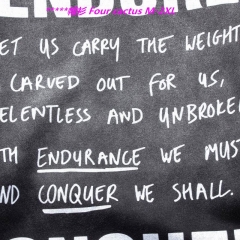 *****衫 Four cactus M-3XL
ET US CARRY THE WEIGHT
CARVED OUT FOR US,
ELENTLESS AND UNBROKE
TH ENDURANCE WE MUS
ND CONQUER WE SHALL.